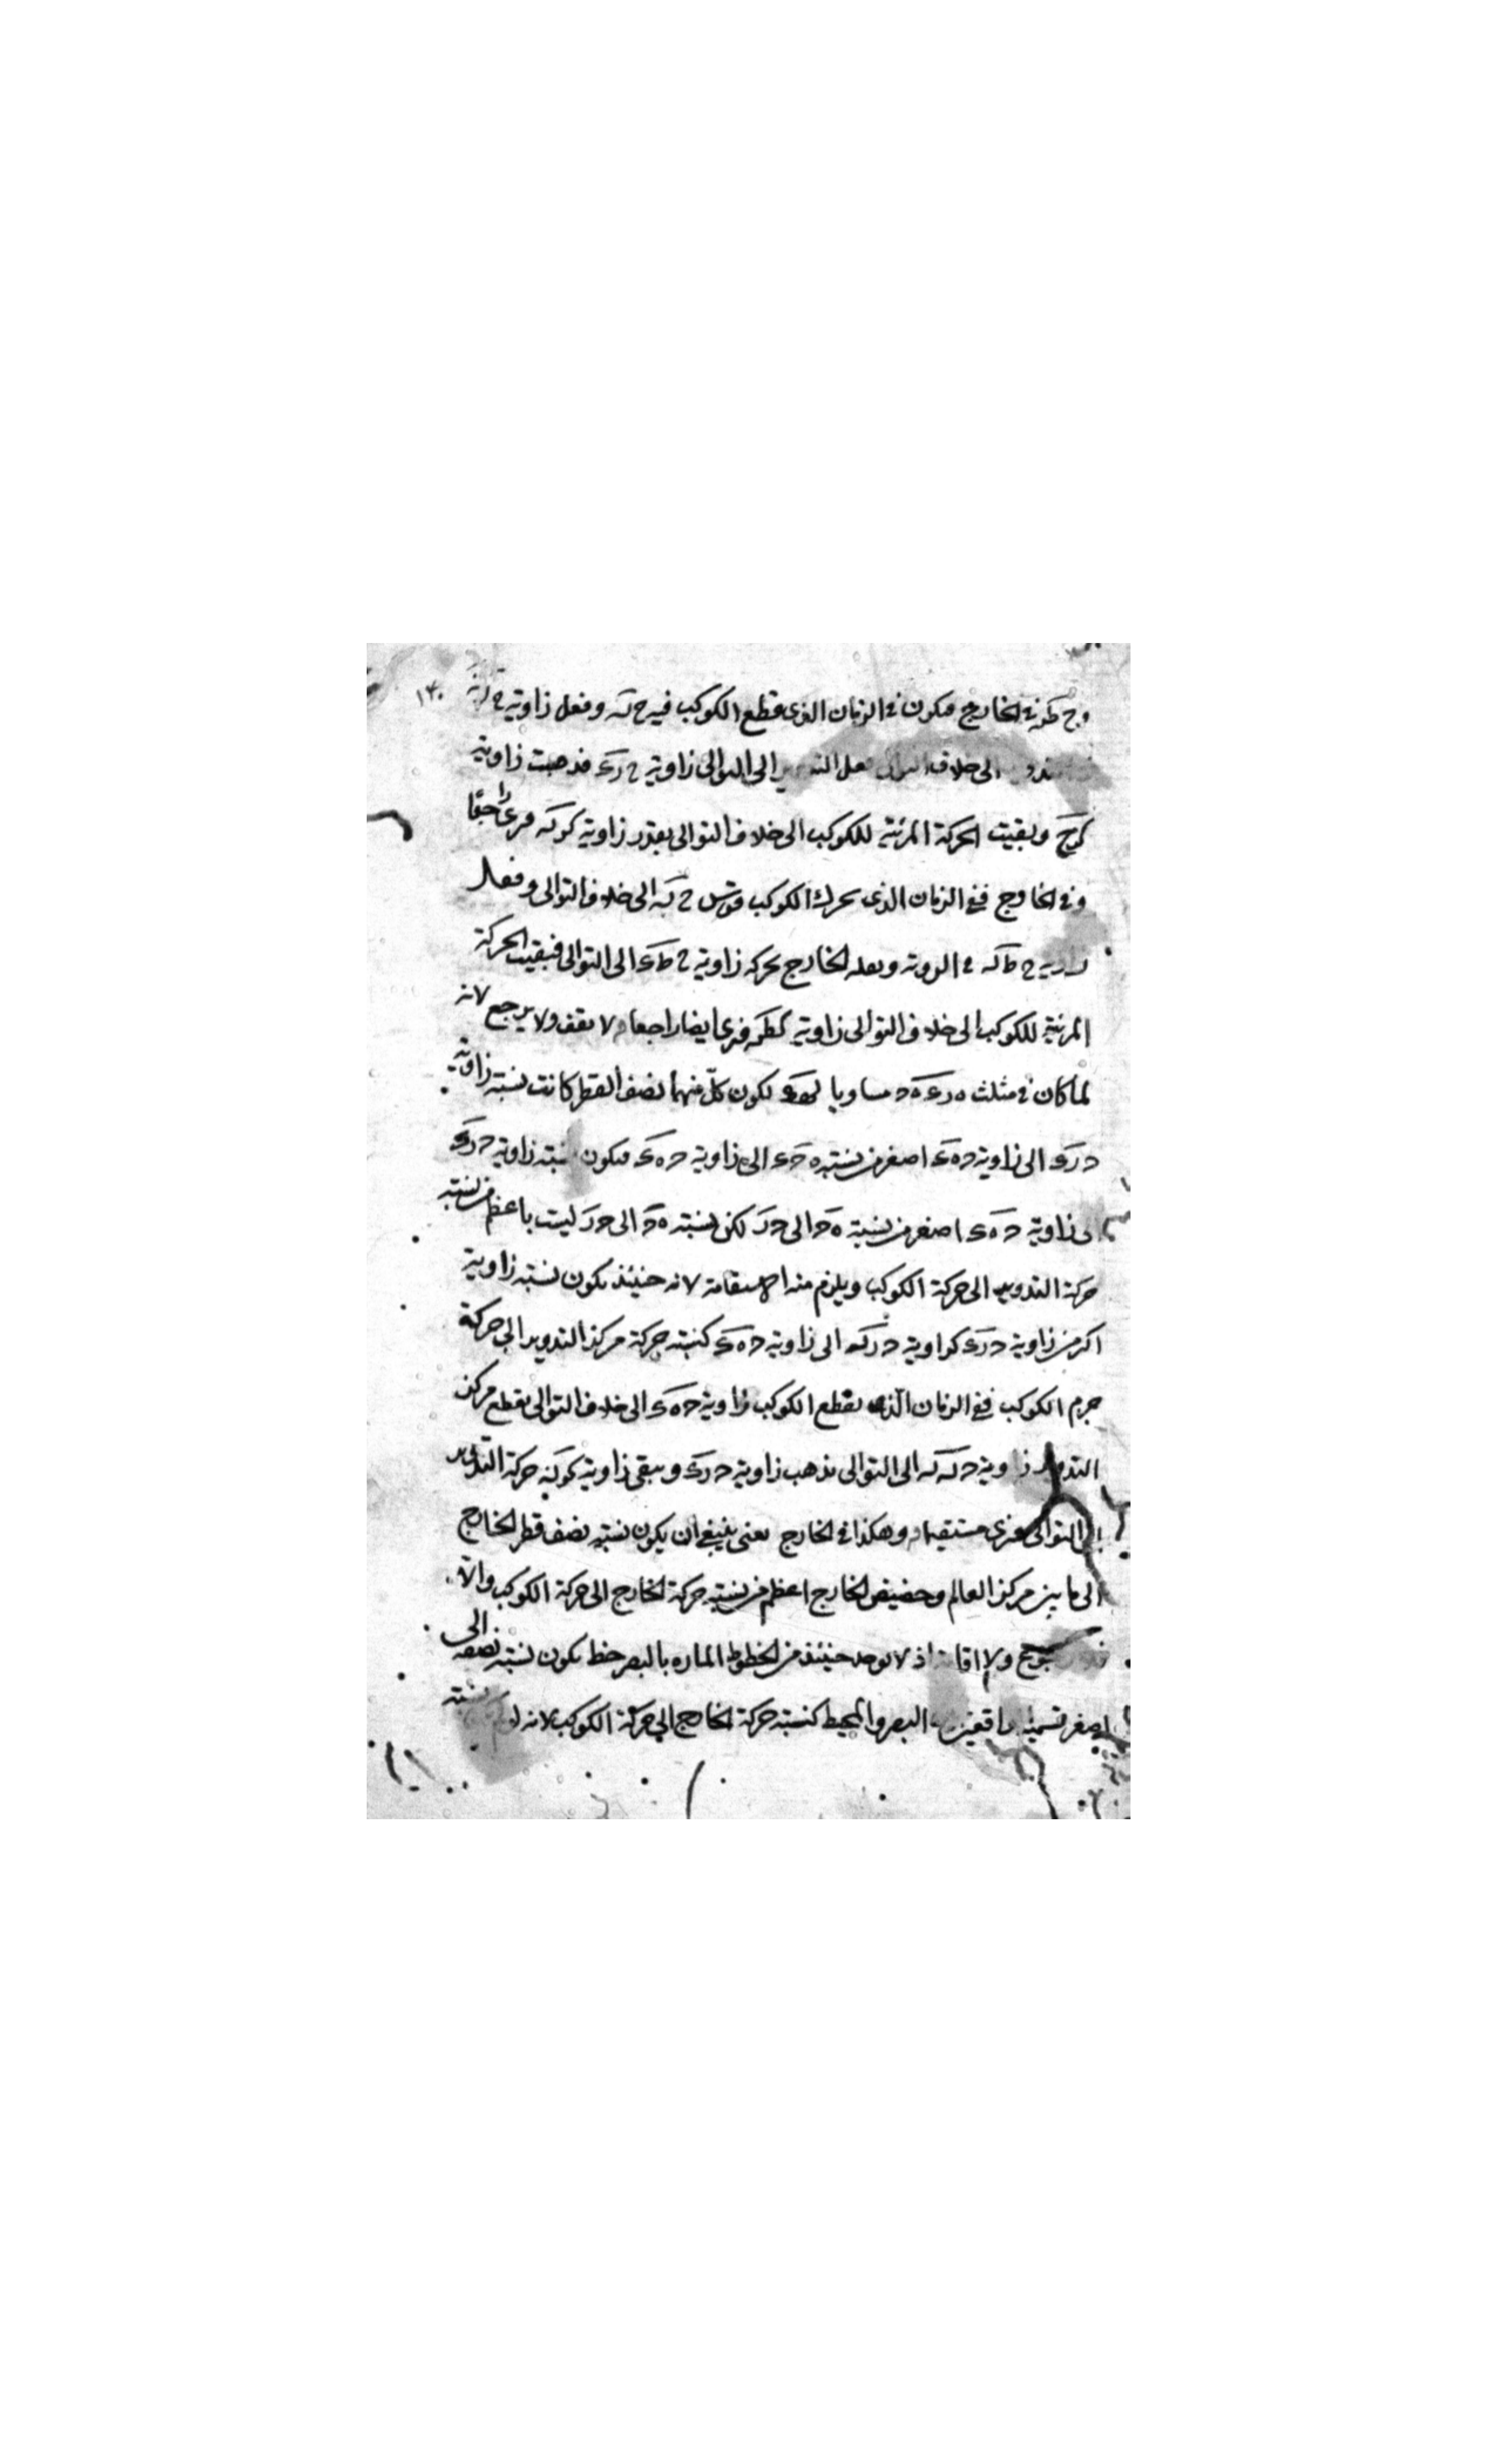 ١٣٠
وح طه فى الخارج فيكون فى الزمان الذى قطع الكوكب فيه ح كه وفعل زاوية ح
الى خلاف التوالى فعل التدوير الى التوالى زاوية ح رء فذهبت زاوية
وبقيت الحركة المرئية للكوكب الى خلاف التوالى بقدر زاوية كو كه فرءى راجعا
وفى الخارج ففى الزمان الذى تحرك الكوكب قوس ح كه الى خلاف التوالى وفعل
زاوية ح ط كه فى الروية وبعله الخارج بحركه زاوية ح ط ء الى التوالى فبقيت الحركة
المرئية للكوكب الى خلاف التوالى زاوية فرءى ايضا راجعا م لا يقف ولا يرجع لانه
لما كان فى مثلث ه ر ء ه د مساويا لكون كل منهما نصف القطر كانت نسبة زاوية
د ر ء الى زاوية د ه ء اصغر من نسبة ه د ء الى زاوية د ه ء فيكون نسبة زاوية د ر ء
الى زاوية د ه ء اصغر من نسبة ه د الى د ر لكن نسبة ه د الى د ر ليست باعظم من نسبة
حركة التدوير الى حركة الكوكب ويلزم منه الاستقامة لانه حينئذ يكون نسبة زاوية
اكبر من زاوية د ر ء كزاوية د ر كه الى زاوية د ه ء كنسبة حركة مركز التدوير الى حركة
جرم الكوكب ففى الزمان الذى يقطع الكوكب زاوية د ه ء الى خلاف التوالى يقطع مركز
التدوير زاوية د ر كه الى التوالى يذهب زاوية د ر ء ويبقى زاوية حركة التدوير
الى التوالى فيرى مستقيما م وهكذا فى الخارج يعنى ينبغى ان يكون نسبة نصف قطر الخارج
الى ما بين مركز العالم وحضيض الخارج اعظم من نسبة حركة الخارج الى حركة الكوكب والا
رجوع ولا اقامة اذ لا يوجد حينئذ من الخطوط الماره بالبصر خط يكون نسبة نصفه الى
اصغر قسميه البصر والمحيط كنسبة حركة الخارج الى حركة الكوكب لانه نسبة